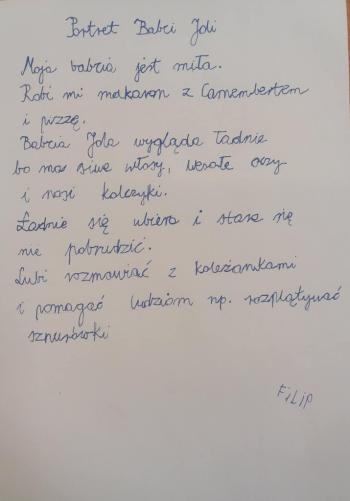 Portret Babci Joli
Moja babcia jest miła.
Robi mi makaron z Camembertem
i pizzę.
Babcia Jola wygląda ładnie
bo ma siwe włosy, wesołe oczy
i nosi kolczyki.
Ładnie się ubiera i stara się
nie pobrudzić.
Lubi rozmawiać z koleżankami
i pomagać ludziom np. rozplątywać
sznurówki
Filip